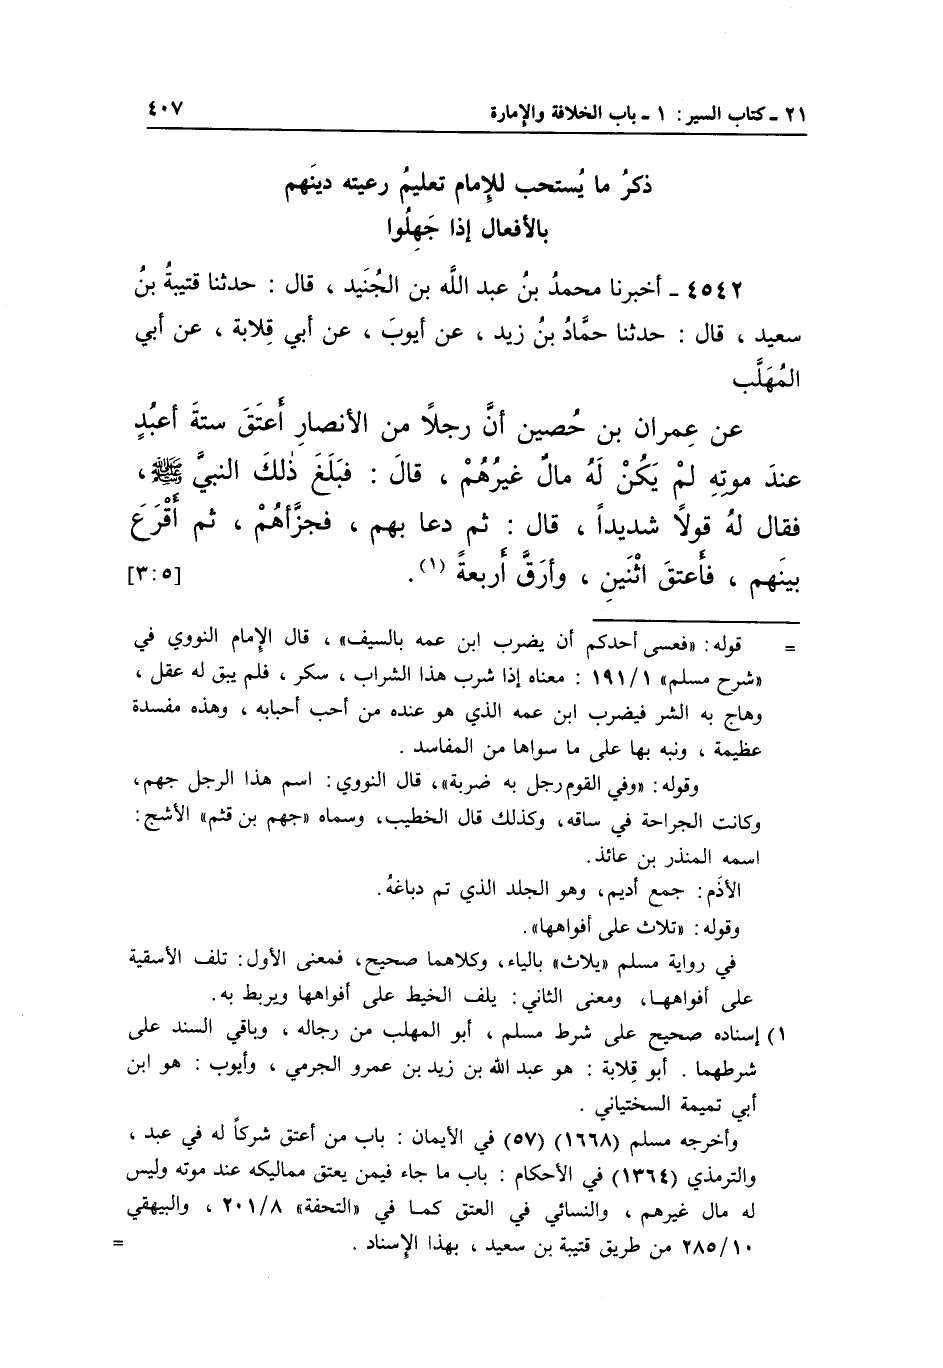 ٢١ ـ كتاب السير: ١ ـ باب الخلافة والإمارة ٤٠٧
ذكرُ ما يُستحب للإمام تعليمُ رعيته دينَهم
بالأفعال إذا جَهِلُوا
٤٥٤٢ ـ أخبرنا محمدُ بنُ عبد اللَّه بن الجُنَيد ، قال : حدثنا قتيبةُ بنُ
سعيد ، قال : حدثنا حمَّادُ بنُ زيد ، عن أيوبَ ، عن أبي قِلابة ، عن أبي
المُهَلَّب
عن عِمران بن حُصين أنَّ رجلاً من الأنصارِ أَعتَقَ ستةَ أعبُدٍ
عندَ موتِهِ لمْ يَكُنْ لَهُ مالٌ غيرُهُمْ ، قالَ : فبَلَغَ ذٰلكَ النبيَّ ﷺ ،
فقال لهُ قولاً شديداً ، قال : ثم دعا بهم ، فجزَّأهُمْ ، ثم أَقْرَعَ
بينَهم ، فأَعتقَ اثْنَينِ ، وأرَقَّ أَربعةً (١) . [٣:٥]
= قوله: «فعسى أحدكم أن يضرب ابن عمه بالسيف» ، قال الإمام النووي في
«شرح مسلم» ١٩١/١ : معناه إذا شرب هذا الشراب ، سكر ، فلم يبق له عقل ،
وهاج به الشر فيضرب ابن عمه الذي هو عنده من أحب أحبابه ، وهذه مفسدة
عظيمة ، ونبه بها على ما سواها من المفاسد .
وقوله: «وفي القوم رجل به ضربة»، قال النووي: اسم هذا الرجل جهم،
وكانت الجراحة في ساقه، وكذلك قال الخطيب، وسماه «جهم بن قثم» الأشج:
اسمه المنذر بن عائذ.
الأدَم: جمع أديم، وهو الجلد الذي تم دباغهُ.
وقوله: «تلاث على أفواهها».
في رواية مسلم «يلاث» بالياء، وكلاهما صحيح، فمعنى الأول: تلف الأسقية
على أفواهها، ومعنى الثاني: يلف الخيط على أفواهها ويربط به.
١) إسناده صحيح على شرط مسلم ، أبو المهلب من رجاله ، وباقي السند على
شرطهما . أبو قِلابة : هو عبد الله بن زيد بن عمرو الجرمي ، وأيوب : هو ابن
أبي تميمة السختياني .
وأخرجه مسلم (١٦٦٨) (٥٧) في الأيمان : باب من أعتق شركاً له في عبد ،
والترمذي (١٣٦٤) في الأحكام : باب ما جاء فيمن يعتق مماليكه عند موته وليس
له مال غيرهم ، والنسائي في العتق كما في «التحفة» ٢٠١/٨ ، والبيهقي
٢٨٥/١٠ من طريق قتيبة بن سعيد ، بهذا الإسناد . =